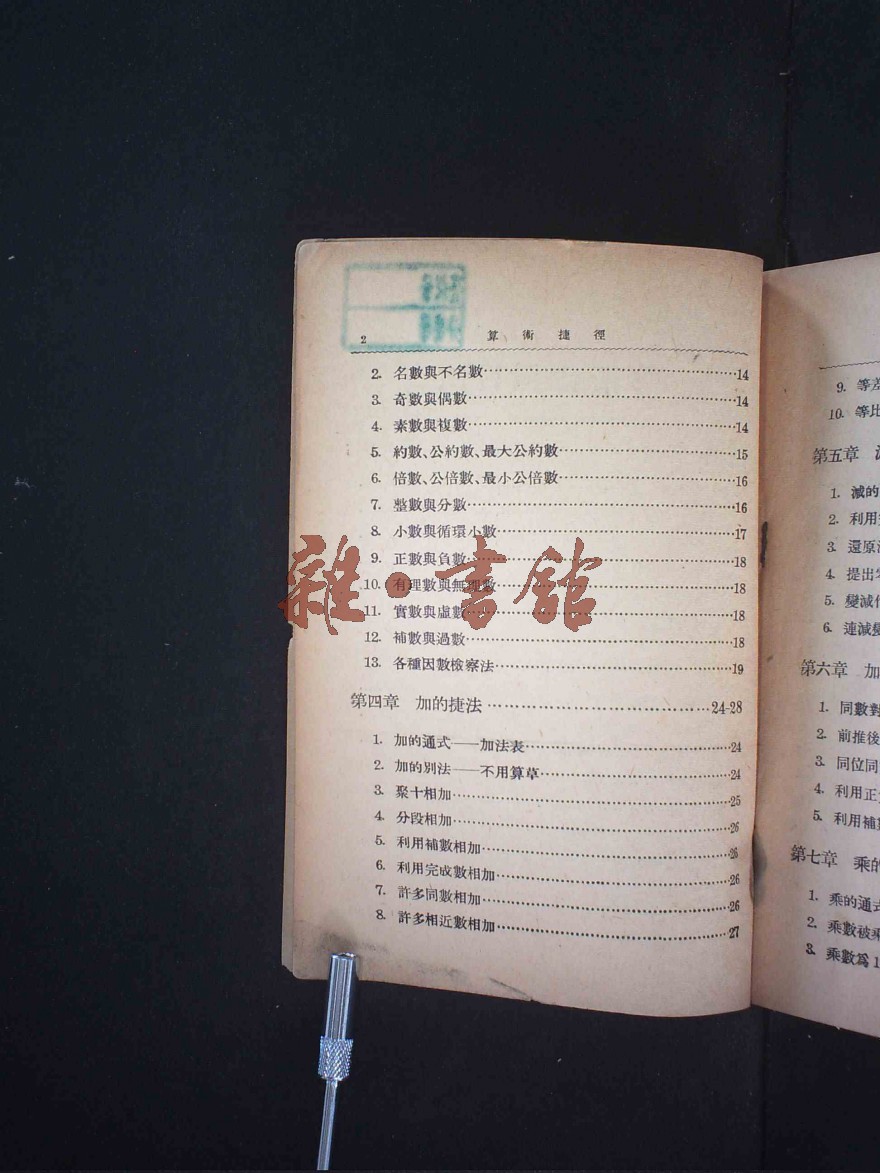 2
算術捷徑
2. 名數與不名數……14
3. 奇數與偶數……14
4. 素數與複數……14
5. 約數、公約數、最大公約數……15
6. 倍數、公倍數、最小公倍數……16
7. 整數與分數……16
8. 小數與循環小數……17
9. 正數與負數……18
10. 有理數與無理數……18
11. 實數與虛數……18
12. 補數與過數……18
13. 各種因數檢察法……19
第四章 加的捷法……24-28
1. 加的通式——加法表……24
2. 加的別法——不用算草……24
3. 聚十相加……25
4. 分段相加……26
5. 利用補數相加……26
6. 利用完成數相加……26
7. 許多同數相加……26
8. 許多相近數相加……27
9. 等差
10. 等比
第五章
1. 減的
2. 利用
3. 還原
4. 提出
5. 變減
6. 連減變
第六章 加
1. 同數對
2. 前推後
3. 同位同
4. 利用正
5. 利用補
第七章 乘的
1. 乘的通式
2. 乘數被乘
3. 乘數爲1
雜·書館